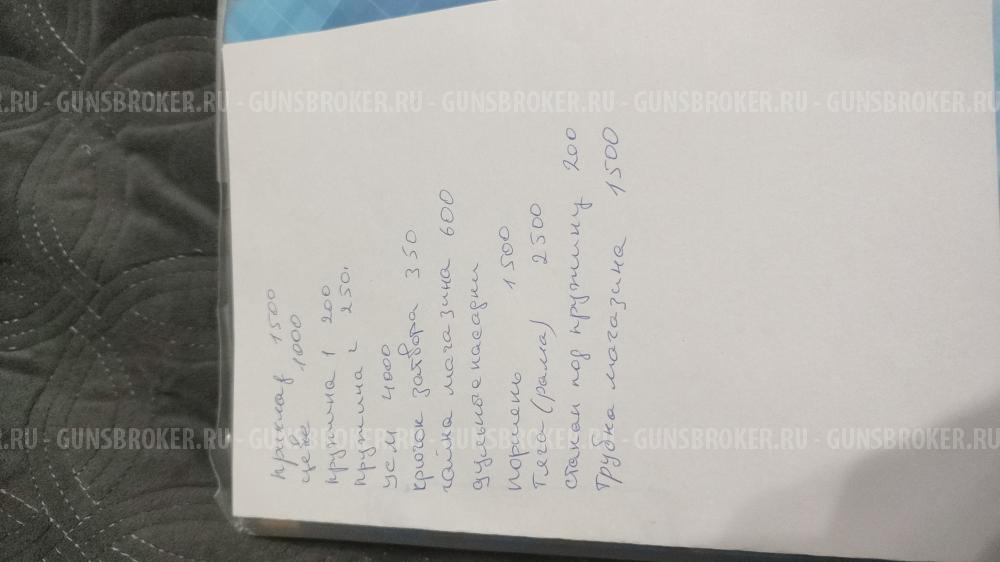 приклад 1500
цевье 1000
пружина 1 200
пружина 2 250.
усм 4000
крючок затвора 350
гайка магазина 600
дульные насадки
поршень 1500
тяга (рама) 2500
стакан под пружину 200
трубка магазина 1500
.RU - GUNSBROKER.RU - GUNSBROKER.RU - GUNSBROKER.RU - GUNSBROKER.RU - GUNSBROKER
.RU - GUNSBROKER.RU - GUNSBROKER.RU - GUNSBROKER.RU - GUNSBROKER.RU - GUNSBROKER